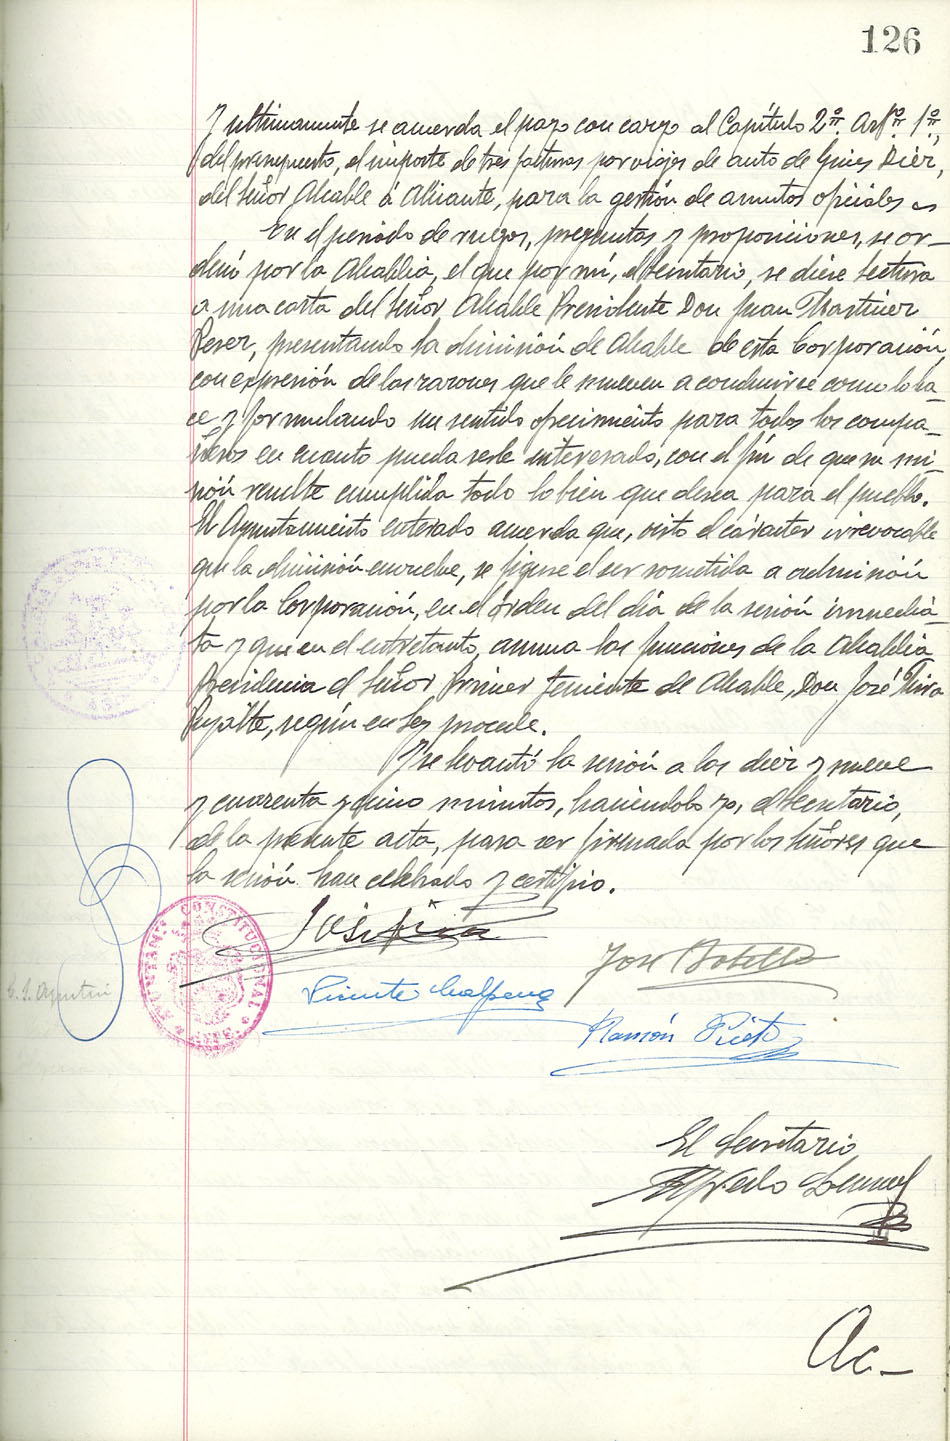 126
Y ultimamente se acuerda el pago con cargo al Capítulo 2º. Artº. 1º,
del presupuesto, el importe de tres facturas por viajes de auto de Gines Dier,
del Señor Alcalde á Alicante, para la gestión de asuntos oficiales
En el periodo de ruegos, preguntas y proposiciones, se or-
denó por la Alcaldia, el que por mí, el Secretario, se diese lectura
a una carta del Señor Alcalde Presidente Don Juan Martinez
Perez, presentando la dimisión de Alcalde de esta Corporación,
con expresión de las razones que le mueven a conducirse como lo ha-
ce y formulando un sentido ofrecimiento para todos los compa-
ñeros en cuanto pueda serle interesado, con el fin de que su mi-
sión resulte cumplida todo lo bien que desea para el pueblo.
El Ayuntamiento enterado acuerda que, visto el carácter irrevocable
que la dimisión envuelve, se figure el ser sometida a admisión
por la Corporación, en el órden del día de la sesión inmedia-
ta y que en el entretanto, asuma las funciones de la Alcaldia
Presidencia el Señor Primer Teniente de Alcalde, Don José
según en Ley procede.
Y se levantó la sesión a las diez y nueve
y cuarenta y cinco minutos, haciéndolo yo, el Secretario,
de la presente acta, para ser firmada por los Señores que
la sesión han celebrado y certifico.
José
AYUNTAM. CONSTITUCIONAL
José Botella
Vicente
Ramón Prieto
El Secretario
Alfredo
Ac-